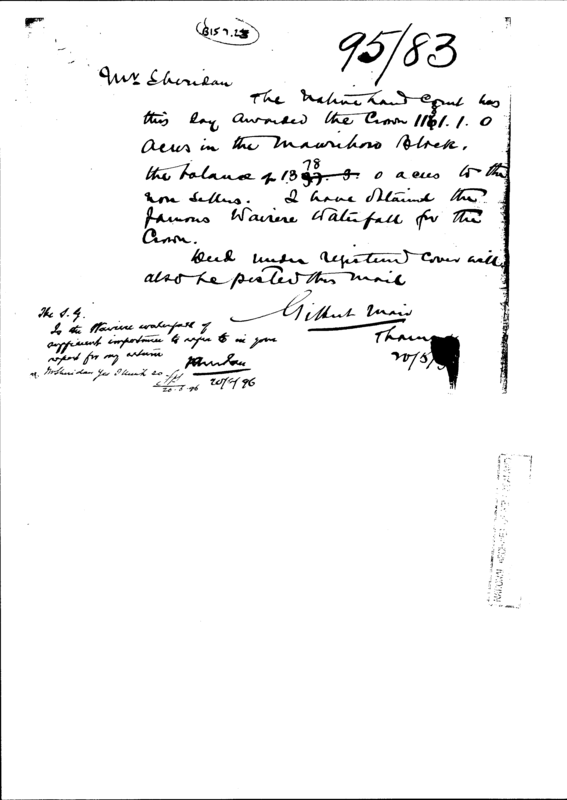 B157.23
95/83
Mr Sheridan
The Native Land Court has
this day awarded the Crown 1161.1.0
acres in the Mawrihoro Block,
78
the balance of 13 0 acres to the
non sellers. I have obtained the
famous Wairere Waterfall for the
Crown.
Deed under registered cover will
also be posted this mail
Gilbert Mair
Thames
20/5/
The S. G.
Is the Wairere waterfall of
sufficient importance to refer to in your
report for my return
Mr Sheridan Yes I think so
20.5.96